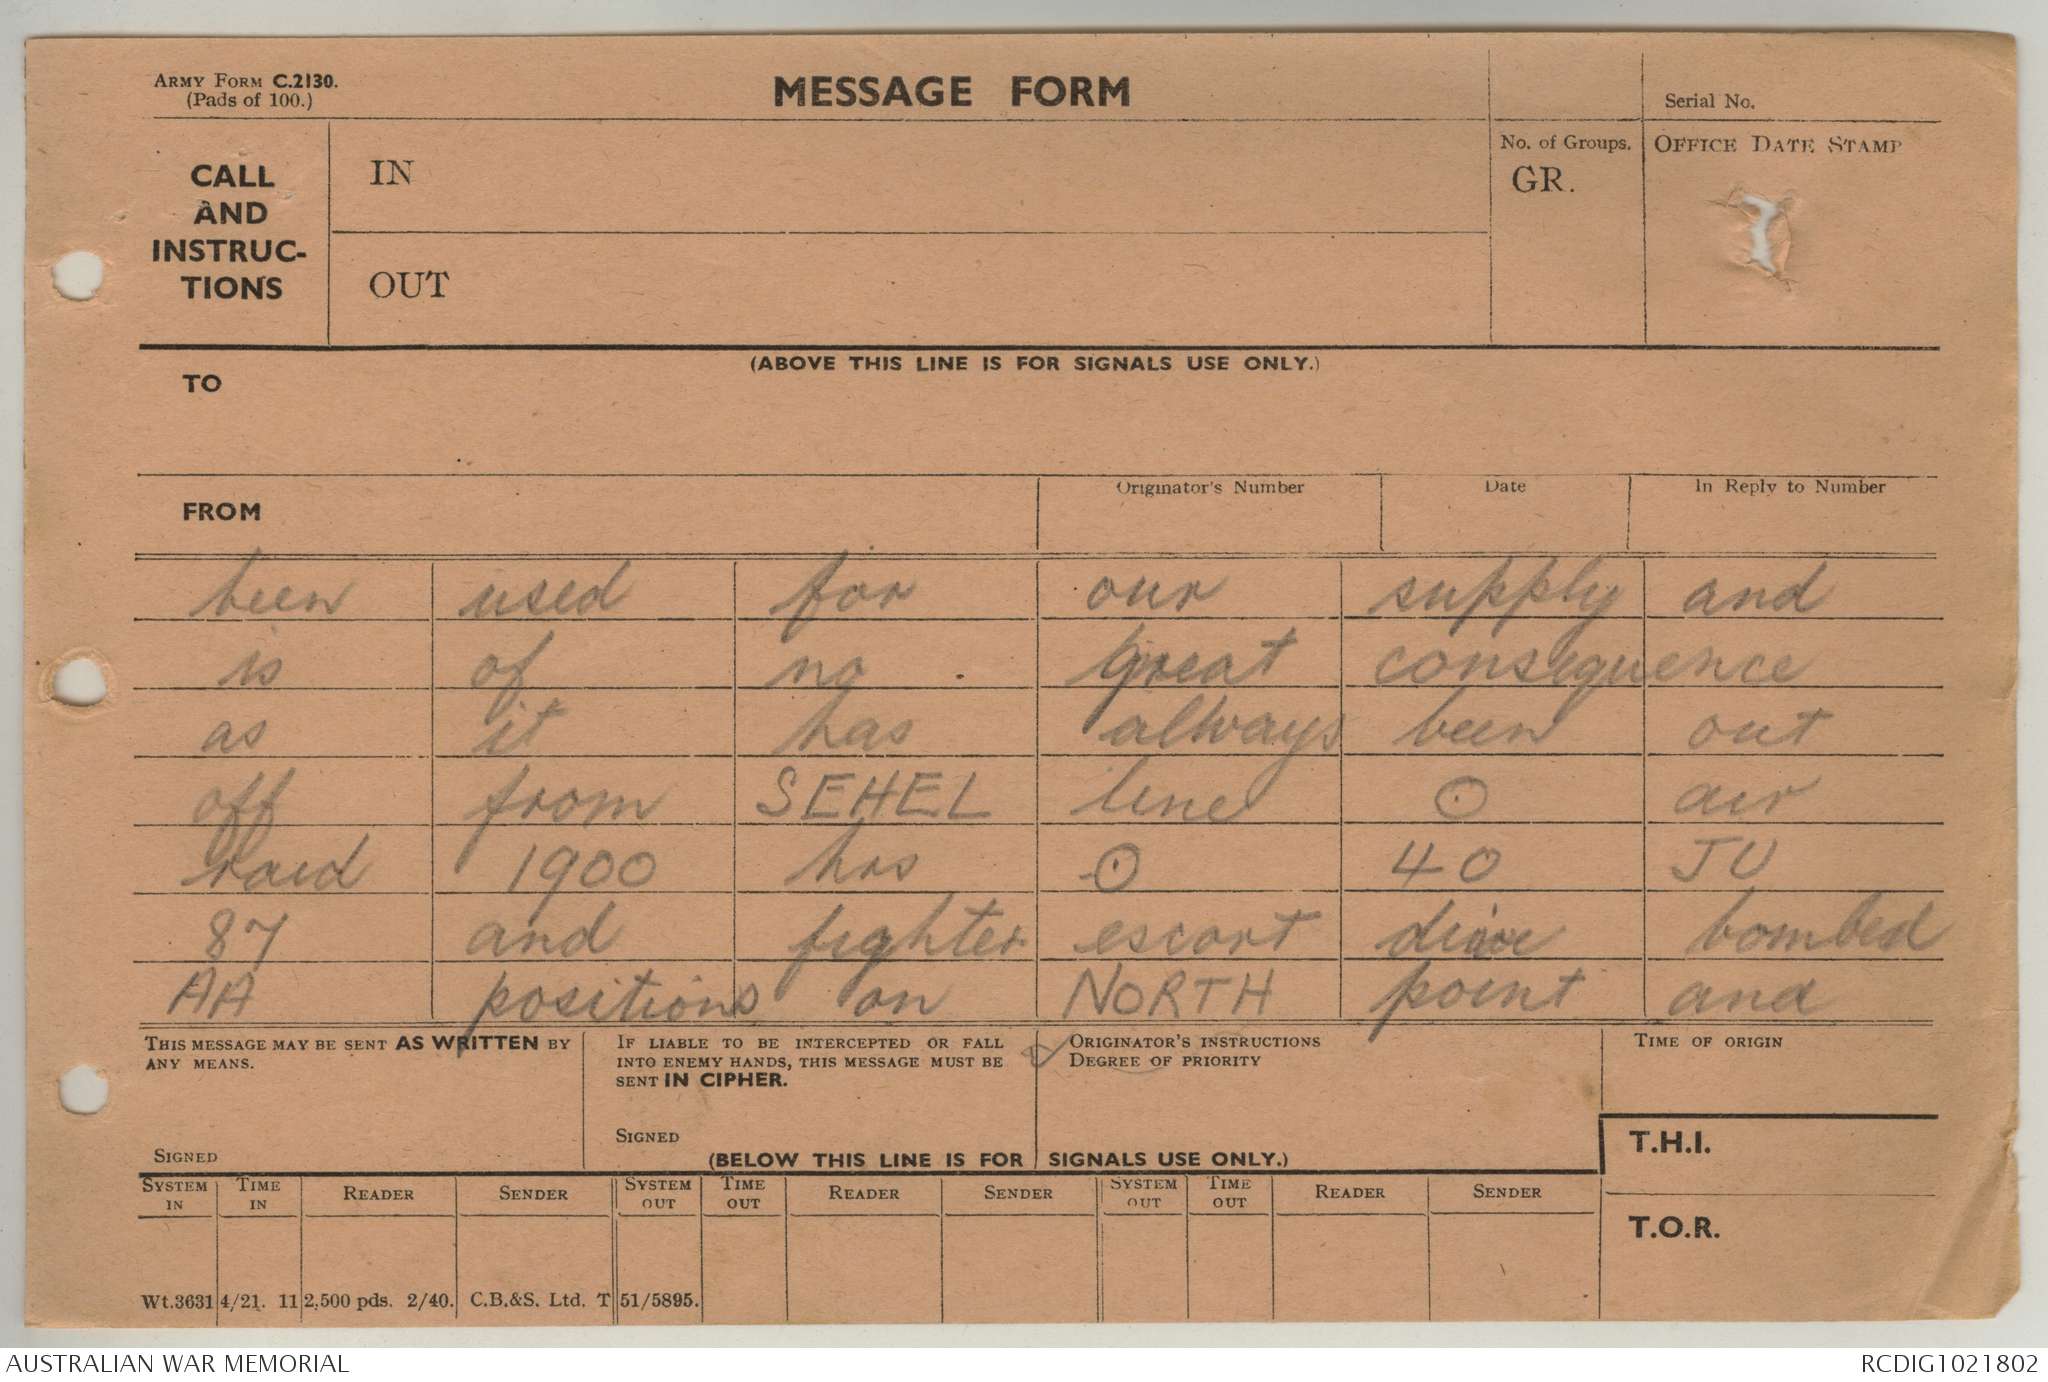 ARMY FORM C.2130.
(Pads of 100.)
MESSAGE FORM
Serial No.
CALL AND INSTRUC- TIONS
IN
No. of Groups.
GR.
OFFICE DATE STAMP
OUT
(ABOVE THIS LINE IS FOR SIGNALS USE ONLY.)
TO
FROM
Originator's Number
Date
In Reply to Number
been used for our supply and
is of no great consequence
as it has always been out
off from SEHEL line ⊙ air
raid 1900 hrs ⊙ 40 JU
87 and fighter escort dive bombed
AA positions on NORTH point and
THIS MESSAGE MAY BE SENT AS WRITTEN BY
ANY MEANS.
SIGNED
IF LIABLE TO BE INTERCEPTED OR FALL
INTO ENEMY HANDS, THIS MESSAGE MUST BE
SENT IN CIPHER.
SIGNED
ORIGINATOR'S INSTRUCTIONS
DEGREE OF PRIORITY
TIME OF ORIGIN
(BELOW THIS LINE IS FOR SIGNALS USE ONLY.)
T.H.I.
SYSTEM IN TIME IN READER SENDER SYSTEM OUT TIME OUT READER SENDER SYSTEM OUT TIME OUT READER SENDER
T.O.R.
Wt.3631 4/21. 11 2,500 pds. 2/40. C.B.&S. Ltd. T 51/5895.
AUSTRALIAN WAR MEMORIAL
RCDIG1021802